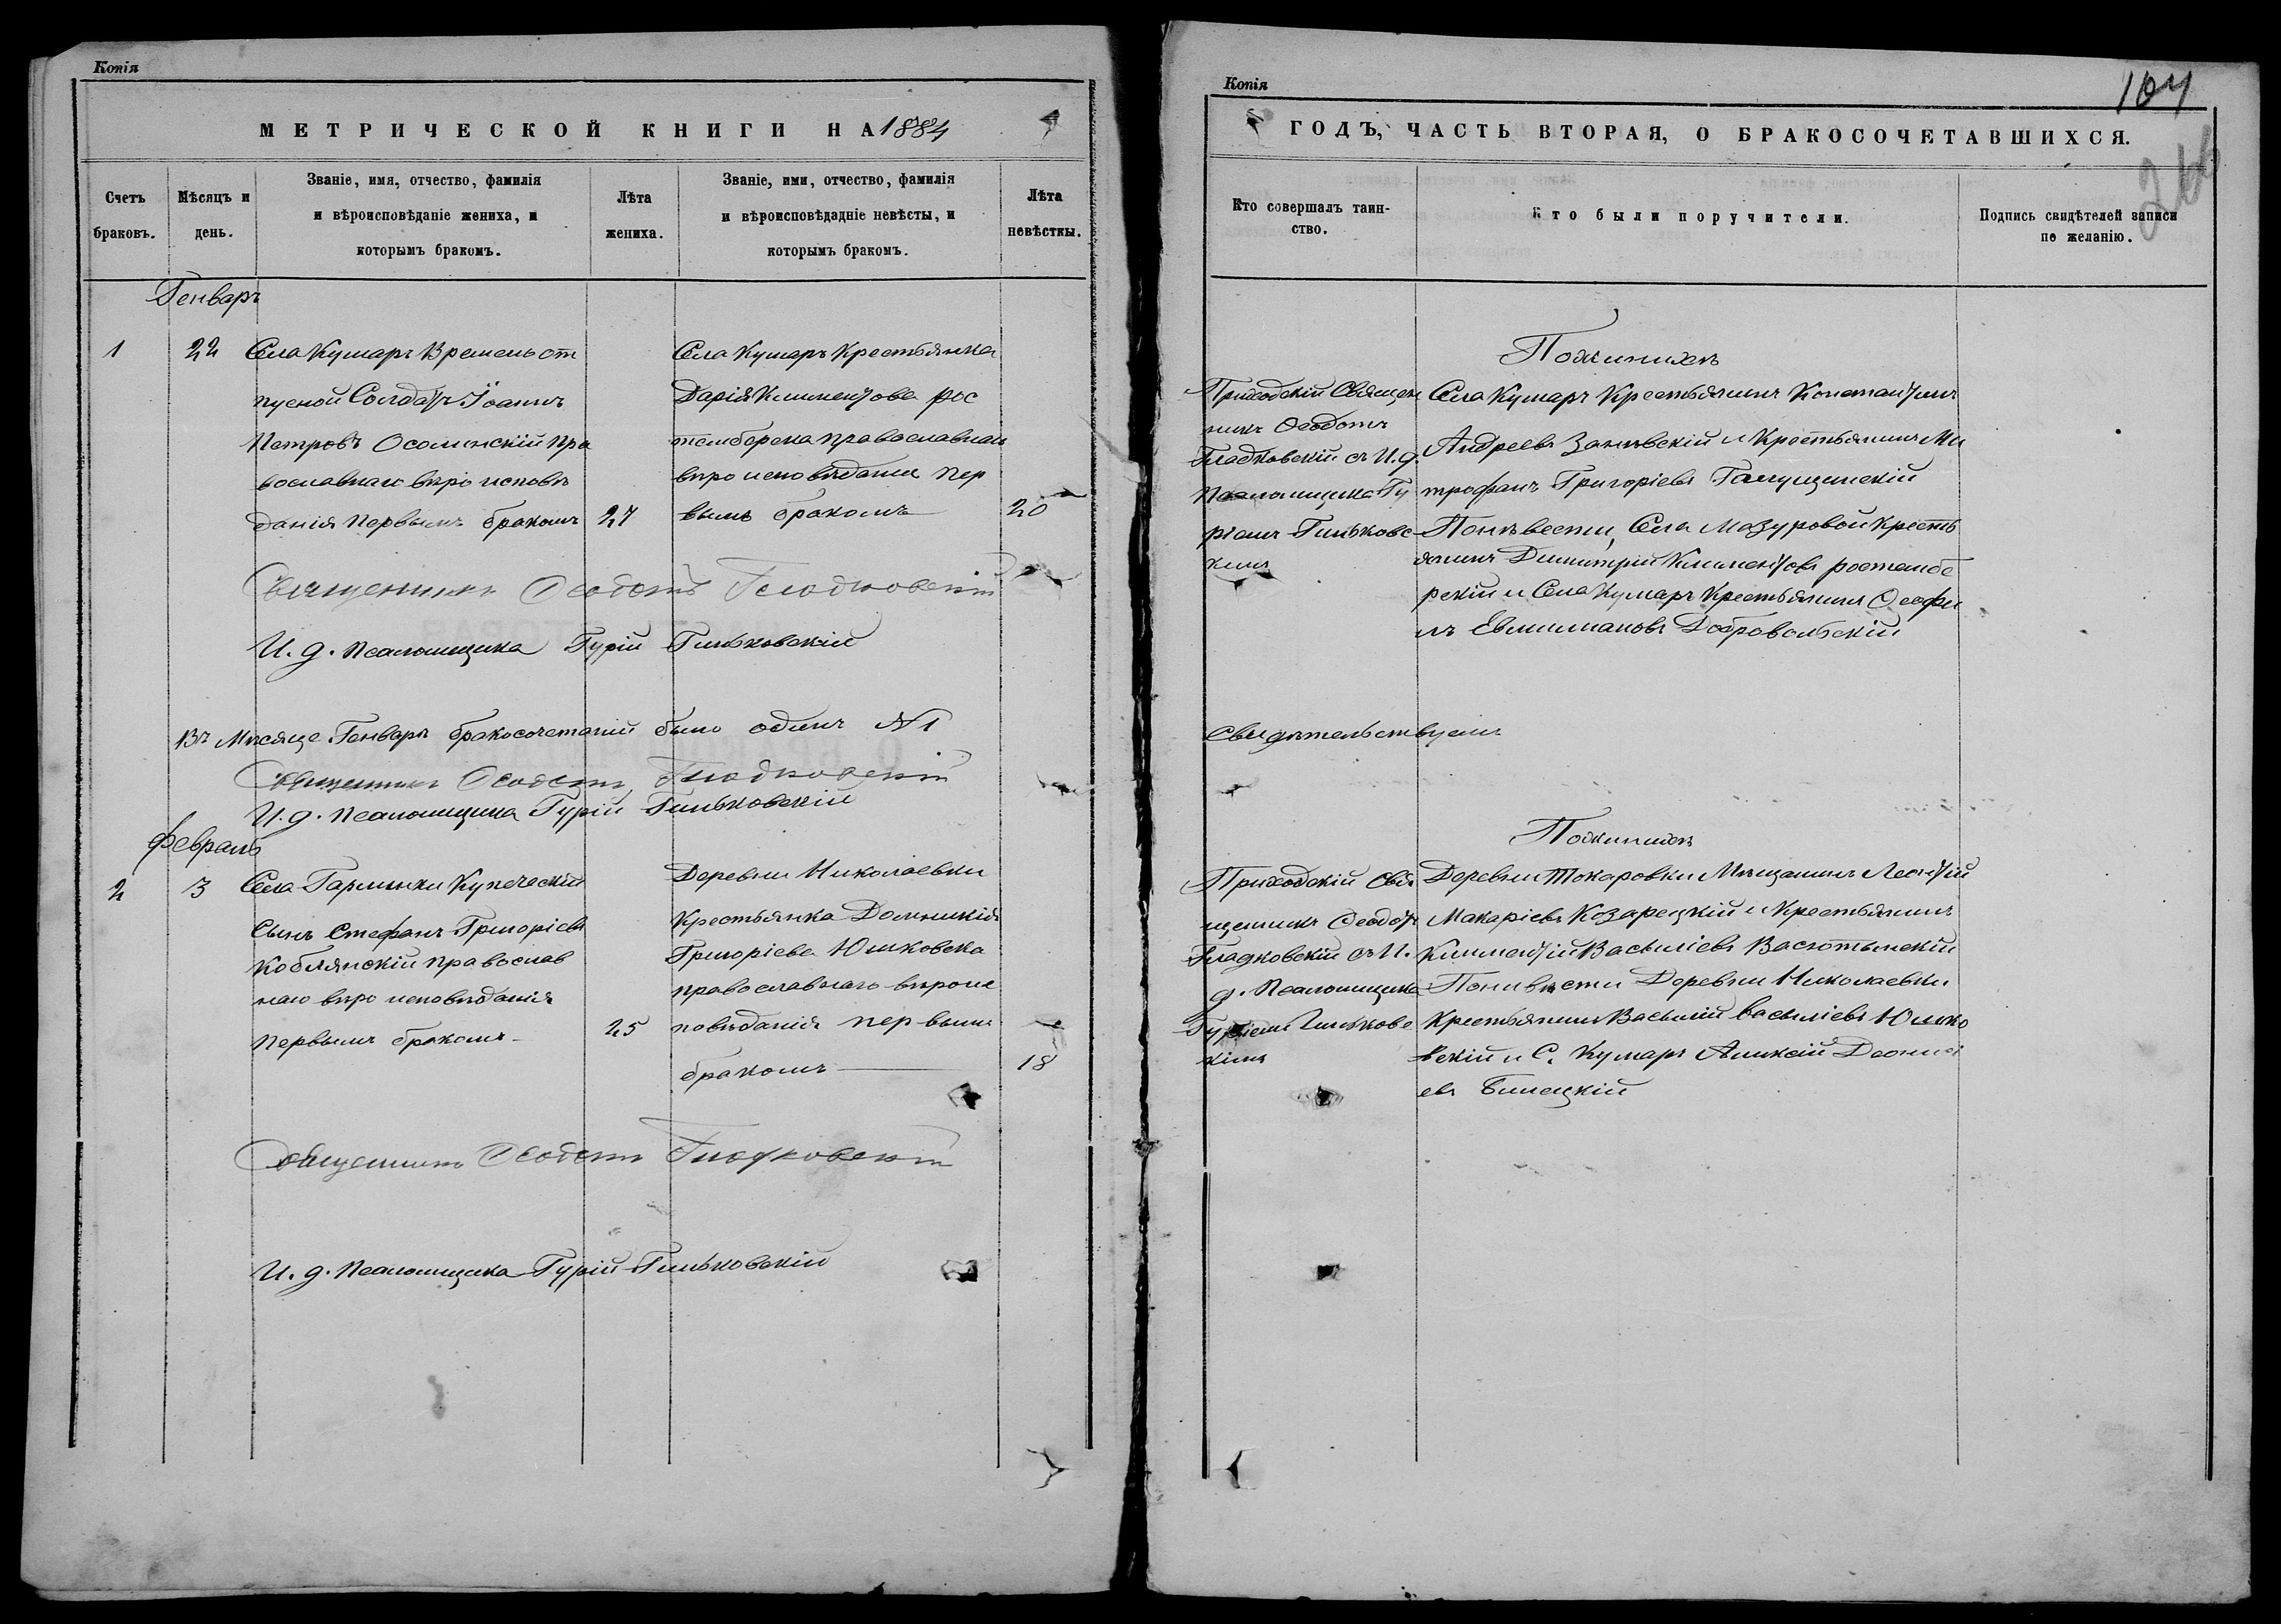 Копія
МЕТРИЧЕСКОЙ КНИГИ НА 1884
Счетъ браковъ.
Мѣсяцъ и день.
Званіе, имя, отчество, фамилія и вѣроисповѣданіе жениха, и которымъ бракомъ.
Лѣта жениха.
Званіе, ими, отчество, фамилія и вѣроисповѣдадніе невѣсты, и которымъ бракомъ.
Лѣта невѣсткы.
Генваръ
1
22
Села Кумаръ Временьот
пусной Солдатъ Іоаннъ
Петровъ Осолинскій пра
вославнаго вѣроисповѣ
данія первымъ бракомъ
27
Села Кумаръ Крестьянка
Дарія Климентова рос
темберска православнаго
вѣроисповѣданія пер
вымъ бракомъ
20
Священникъ Ѳеодотъ Гладковскій
И. д. псаломщика Гурій Гиньковскій
Въ Мѣсяце Генваръ бракосочетаній было одинъ №1
Священникъ Ѳеодотъ Гладковскій
И. д. псаломщика Гурій Гиньковскій
Февраль
2
3
Села Гармынки Купеческій
Сынъ Стефанъ Григоріевъ
Коблянскій православ
наго вѣроисповѣданія
первымъ бракомъ
25
Деревни Николаевки
Крестьянка Домникія
Григоріева Юшковска
православнаго вѣроис
повѣданія первымъ
бракомъ
18
Священникъ Ѳеодотъ Гладковскій
И. д. псаломщика Гурій Гиньковскій
Копія
104
ГОДЪ, ЧАСТЬ ВТОРАЯ, О БРАКОСОЧЕТАВШИХСЯ.
Кто совершалъ таин-
ство.
Кто были поручители.
Подпись свидѣтелей записи
по желанію.
Приходскій Священ
никъ Ѳеодотъ
Гладковскій съ И. д.
псаломщика Гу
ріемъ Гиньковс
кимъ
Пожинихѣ
Села Кумаръ Крестьянинъ Константинъ
Андреевъ Заньвскій и Крестьянинъ Ми
трофанъ Григоріевъ Галущинскій
Поневѣсти, Села Мазуровой Кресть
янинъ Димитрій Климентовъ ростембе
рскій и Села Кумаръ Крестьянинъ Ѳеофи
лъ Добровольскій
Свидѣтельствуемъ
Приходскій Свя
щенникъ Ѳеодотъ
Гладковскій съ И.
д. псаломщика
Гуріемъ Гиньковс
кимъ
Пожинихѣ
Деревни Токаровки Мѣщанинъ Леонтій
Макаріевъ Козарецкій и Крестьянинъ
Климентій Василіевъ Васютынскій
Поневѣсти Деревни Николаевки
Крестьянинъ Василій Василіевъ Юшко
вскій и С. Кумаръ Аликсій Деонисі
евъ Билецкій